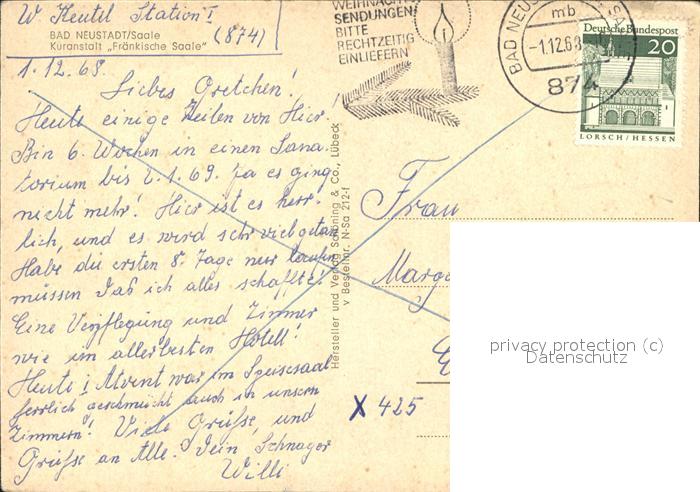 W Heutel Station I
BAD NEUSTADT/Saale
Kuranstalt „Fränkische Saale"
(874)
1.12.68.
Liebes Gretchen!
Heute einige Zeilen von Hier.
Bin 6. Wochen in einen Sana-
torium bis 2.1.69. Ja es ging
nicht mehr! Hier ist es herr-
lich, und es wird sehr viel getan
Habe die ersten 8. Tage nur laufen
müssen daß ich alles schaffte!
Eine Verpflegung und Zimmer
wie im allerbesten Hotell!
Heute 1 Atvent war im Speisesaal
herrlich geschmückt auch in unsern
Zimmern! Viele Grüße, und
Grüße an Alle. Dein Schnager
Willi
Hersteller und Verlag Schöning & Co., Lübeck
Bestellnr. N-Sa 212-f
WEIHNACHT
SENDUNGEN
BITTE
RECHTZEITIG
EINLIEFERN
BAD NEUS SA
mb
-1.12.68
874
Deutsche Bundespost
20
LORSCH/HESSEN
Frau
Marga
privacy protection (c)
Datenschutz
X 425